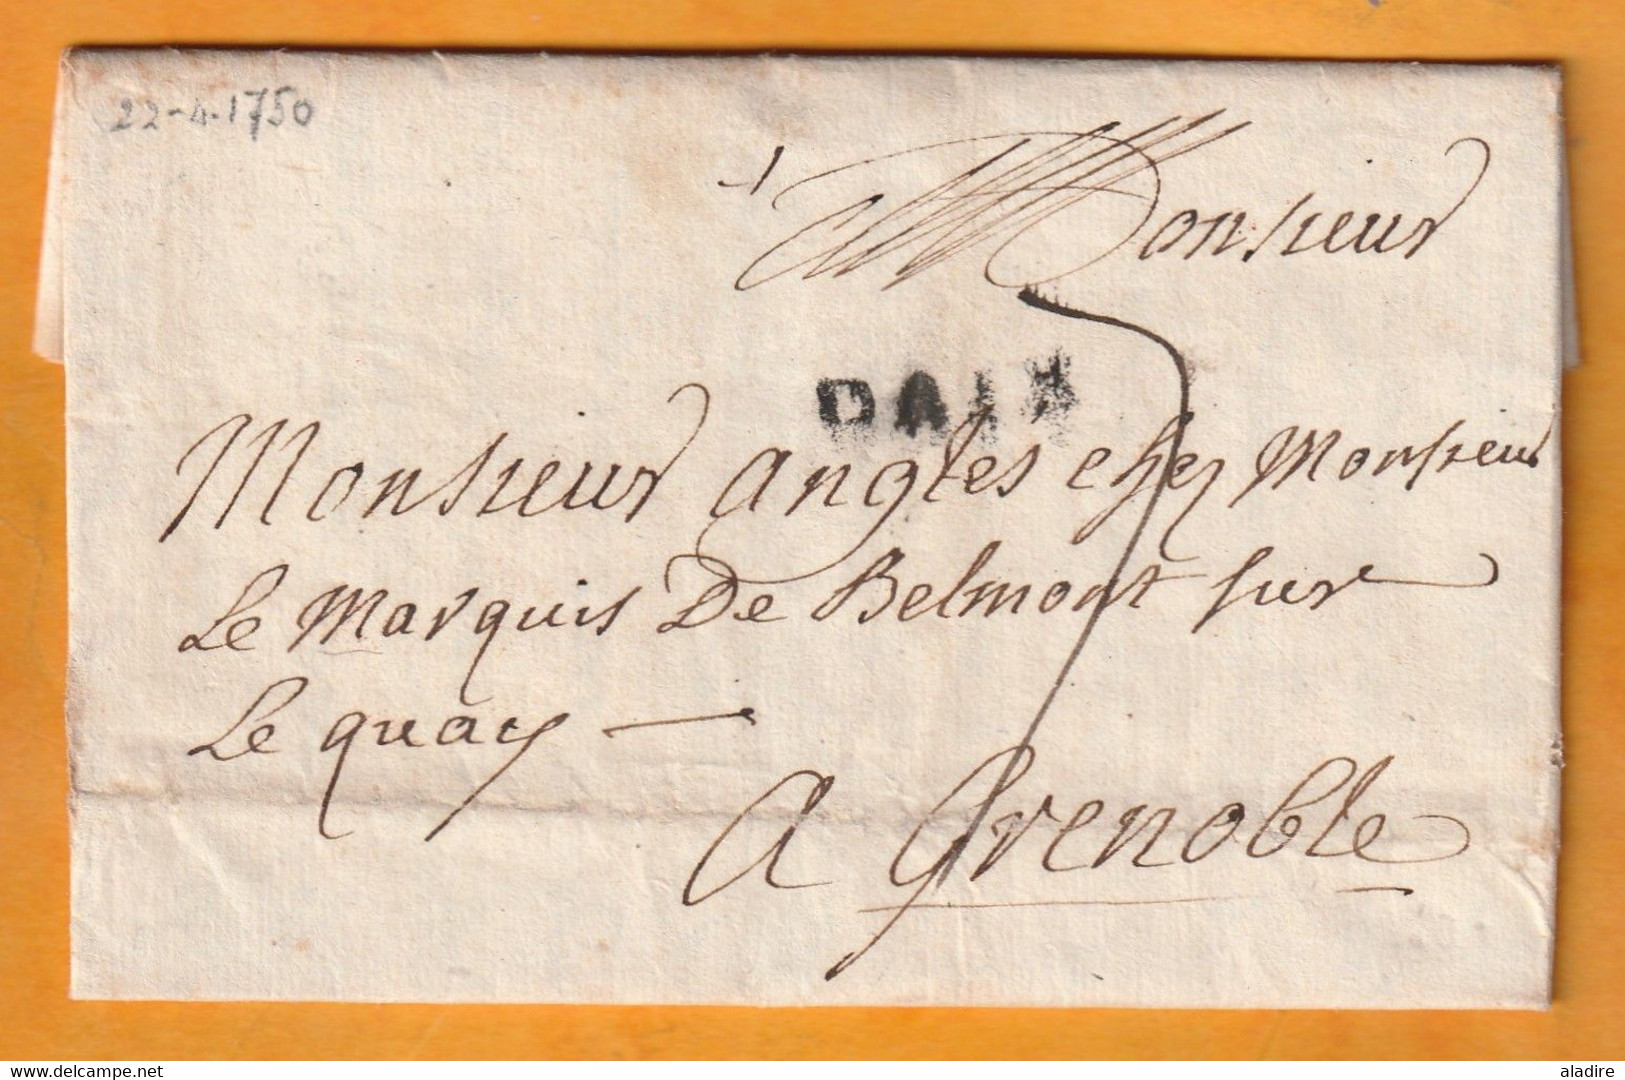 22-4-1750
Monsieur
DAIX
Monsieur angles chez Monsieur
Le Marquis De Belmont sur
Le quay
A Grenoble
delcampe.net
aladire